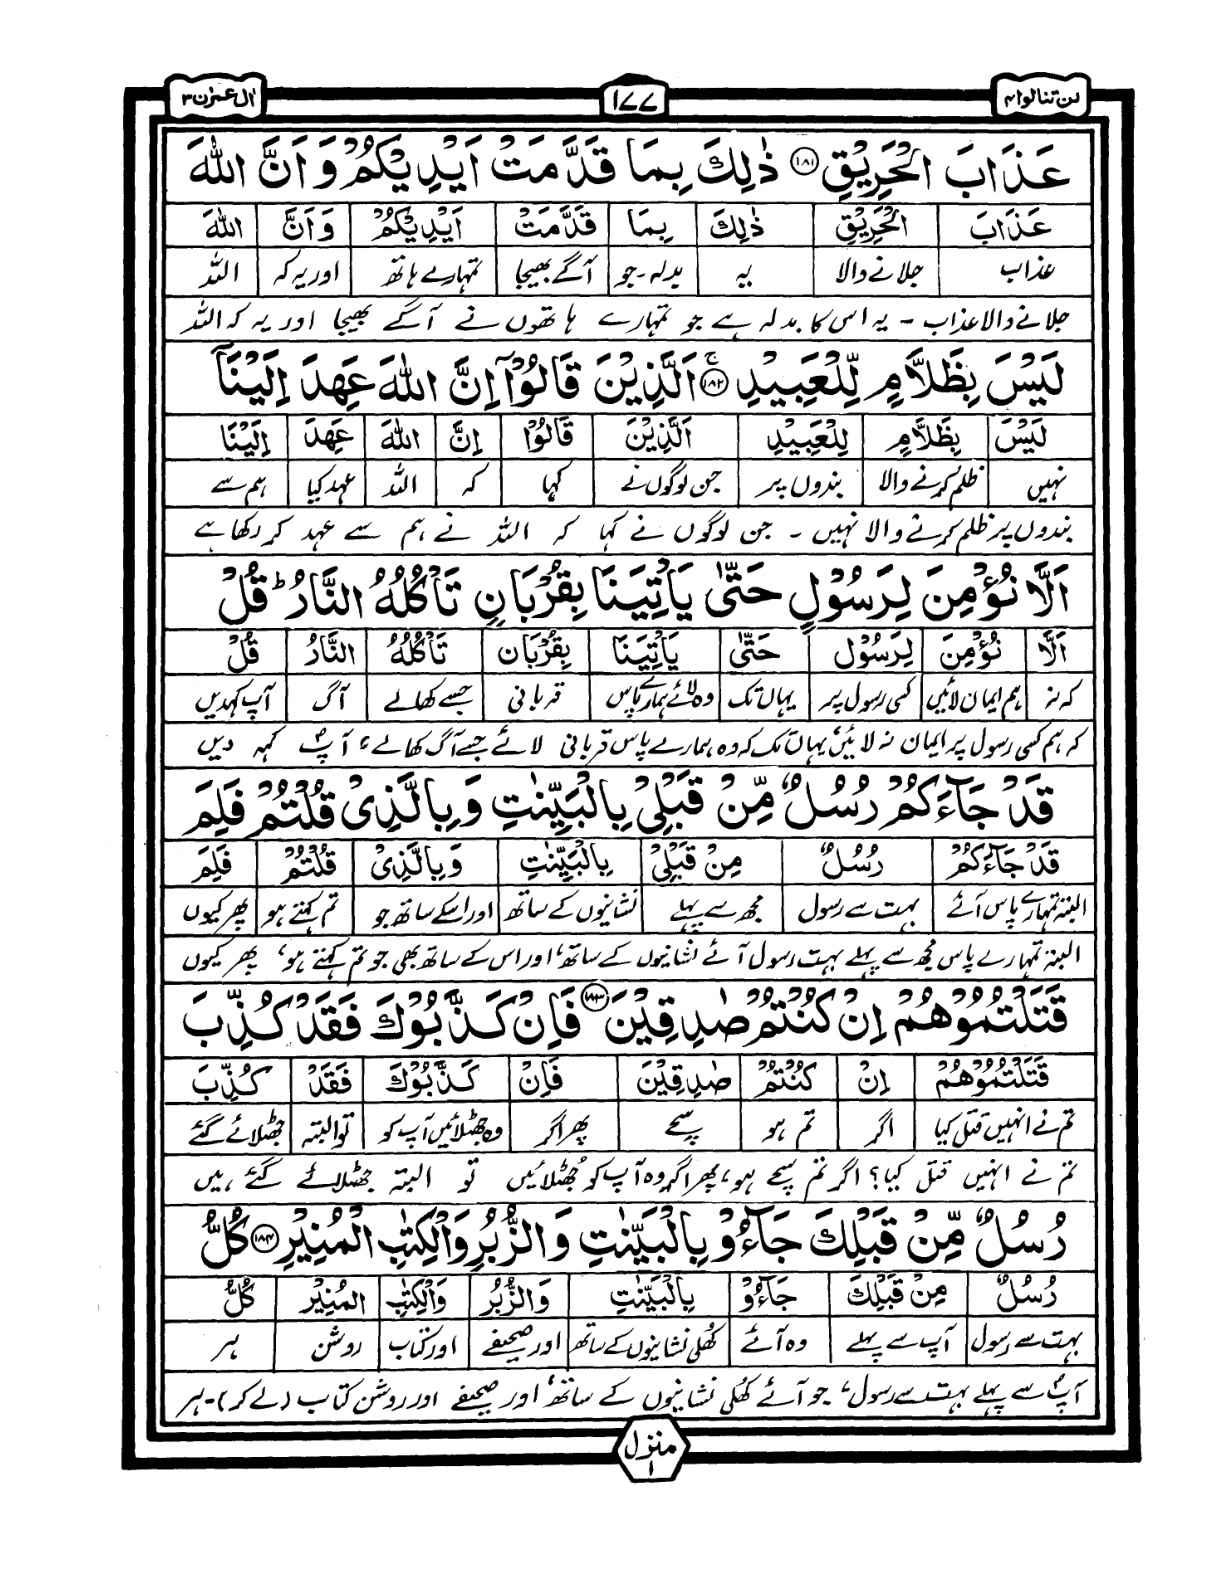 لن تنالوا ۴
۱۷۷
اٰل عمرٰن ۳
عَذَابَ الْحَرِيْقِ ۝۱۸۱ ذٰلِكَ بِمَا قَدَّمَتْ اَيْدِيْكُمْ وَ اَنَّ اللّٰهَ
عَذَابَ الْحَرِيْقِ ذٰلِكَ بِمَا قَدَّمَتْ اَيْدِيْكُمْ وَاَنَّ اللّٰهَ
عذاب جلانے والا یہ بدلہ۔جو آگے بھیجا تمہارے ہاتھ اور یہ کہ اللہ
جلانے والا عذاب ۔ یہ اس کا بدلہ ہے جو تمہارے ہاتھوں نے آگے بھیجا اور یہ کہ اللہ
لَيْسَ بِظَلَّامٍ لِّلْعَبِيْدِ ۝۱۸۲ۚ اَلَّذِيْنَ قَالُوْٓا اِنَّ اللّٰهَ عَهِدَ اِلَيْنَآ
لَيْسَ بِظَلَّامٍ لِلْعَبِيْدِ اَلَّذِيْنَ قَالُوْا اِنَّ اللّٰهَ عَهِدَ اِلَيْنَا
نہیں ظلم کرنے والا بندوں پر جن لوگوں نے کہا کہ اللہ عہد کیا ہم سے
بندوں پر ظلم کرنے والا نہیں ۔ جن لوگوں نے کہا کہ اللہ نے ہم سے عہد کر رکھا ہے
اَلَّا نُؤْمِنَ لِرَسُوْلٍ حَتّٰى يَاْتِيَنَا بِقُرْبَانٍ تَاْكُلُهُ النَّارُ ؕ قُلْ
اَلَّا نُؤْمِنَ لِرَسُوْلٍ حَتّٰى يَاْتِيَنَا بِقُرْبَانٍ تَاْكُلُهُ النَّارُ قُلْ
کہ نہ ہم ایمان لائیں کسی رسول پر یہاں تک وہ لائے ہمارے پاس قربانی جسے کھالے آگ آپ کہدیں
کہ ہم کسی رسول پر ایمان نہ لائیں، یہاں تک کہ وہ ہمارے پاس قربانی لائے جسے آگ کھالے، آپؐ کہہ دیں
قَدْ جَآءَكُمْ رُسُلٌ مِّنْ قَبْلِيْ بِالْبَيِّنٰتِ وَ بِالَّذِيْ قُلْتُمْ فَلِمَ
قَدْ جَآءَكُمْ رُسُلٌ مِنْ قَبْلِيْ بِالْبَيِّنٰتِ وَبِالَّذِيْ قُلْتُمْ فَلِمَ
البتہ تمہارے پاس آئے بہت سے رسول مجھ سے پہلے نشانیوں کے ساتھ اور اسکے ساتھ جو تم کہتے ہو پھر کیوں
البتہ تمہارے پاس مجھ سے پہلے بہت رسول آئے نشانیوں کے ساتھ، اور اس کے ساتھ بھی جو تم کہتے ہو، پھر کیوں
قَتَلْتُمُوْهُمْ اِنْ كُنْتُمْ صٰدِقِيْنَ ۝۱۸۳ فَاِنْ كَذَّبُوْكَ فَقَدْ كُذِّبَ
قَتَلْتُمُوْهُمْ اِنْ كُنْتُمْ صٰدِقِيْنَ فَاِنْ كَذَّبُوْكَ فَقَدْ كُذِّبَ
تم نے انہیں قتل کیا اگر تم ہو سچے پھر اگر وہ جھٹلائیں آپ کو تو البتہ جھٹلائے گئے
تم نے انہیں قتل کیا؟ اگر تم سچے ہو، پھر اگر وہ آپ کو جھٹلائیں تو البتہ جھٹلائے گئے ہیں
رُسُلٌ مِّنْ قَبْلِكَ جَآءُوْ بِالْبَيِّنٰتِ وَالزُّبُرِ وَالْكِتٰبِ الْمُنِيْرِ ۝۱۸۴ كُلُّ
رُسُلٌ مِنْ قَبْلِكَ جَآءُوْ بِالْبَيِّنٰتِ وَالزُّبُرِ وَالْكِتٰبِ الْمُنِيْرِ كُلُّ
بہت سے رسول آپ سے پہلے وہ آئے کھلی نشانیوں کے ساتھ اور صحیفے اور کتاب روشن ہر
آپؐ سے پہلے بہت سے رسول، جو آئے کھلی نشانیوں کے ساتھ، اور صحیفے اور روشن کتاب (لے کر)۔ ہر
منزل ۱